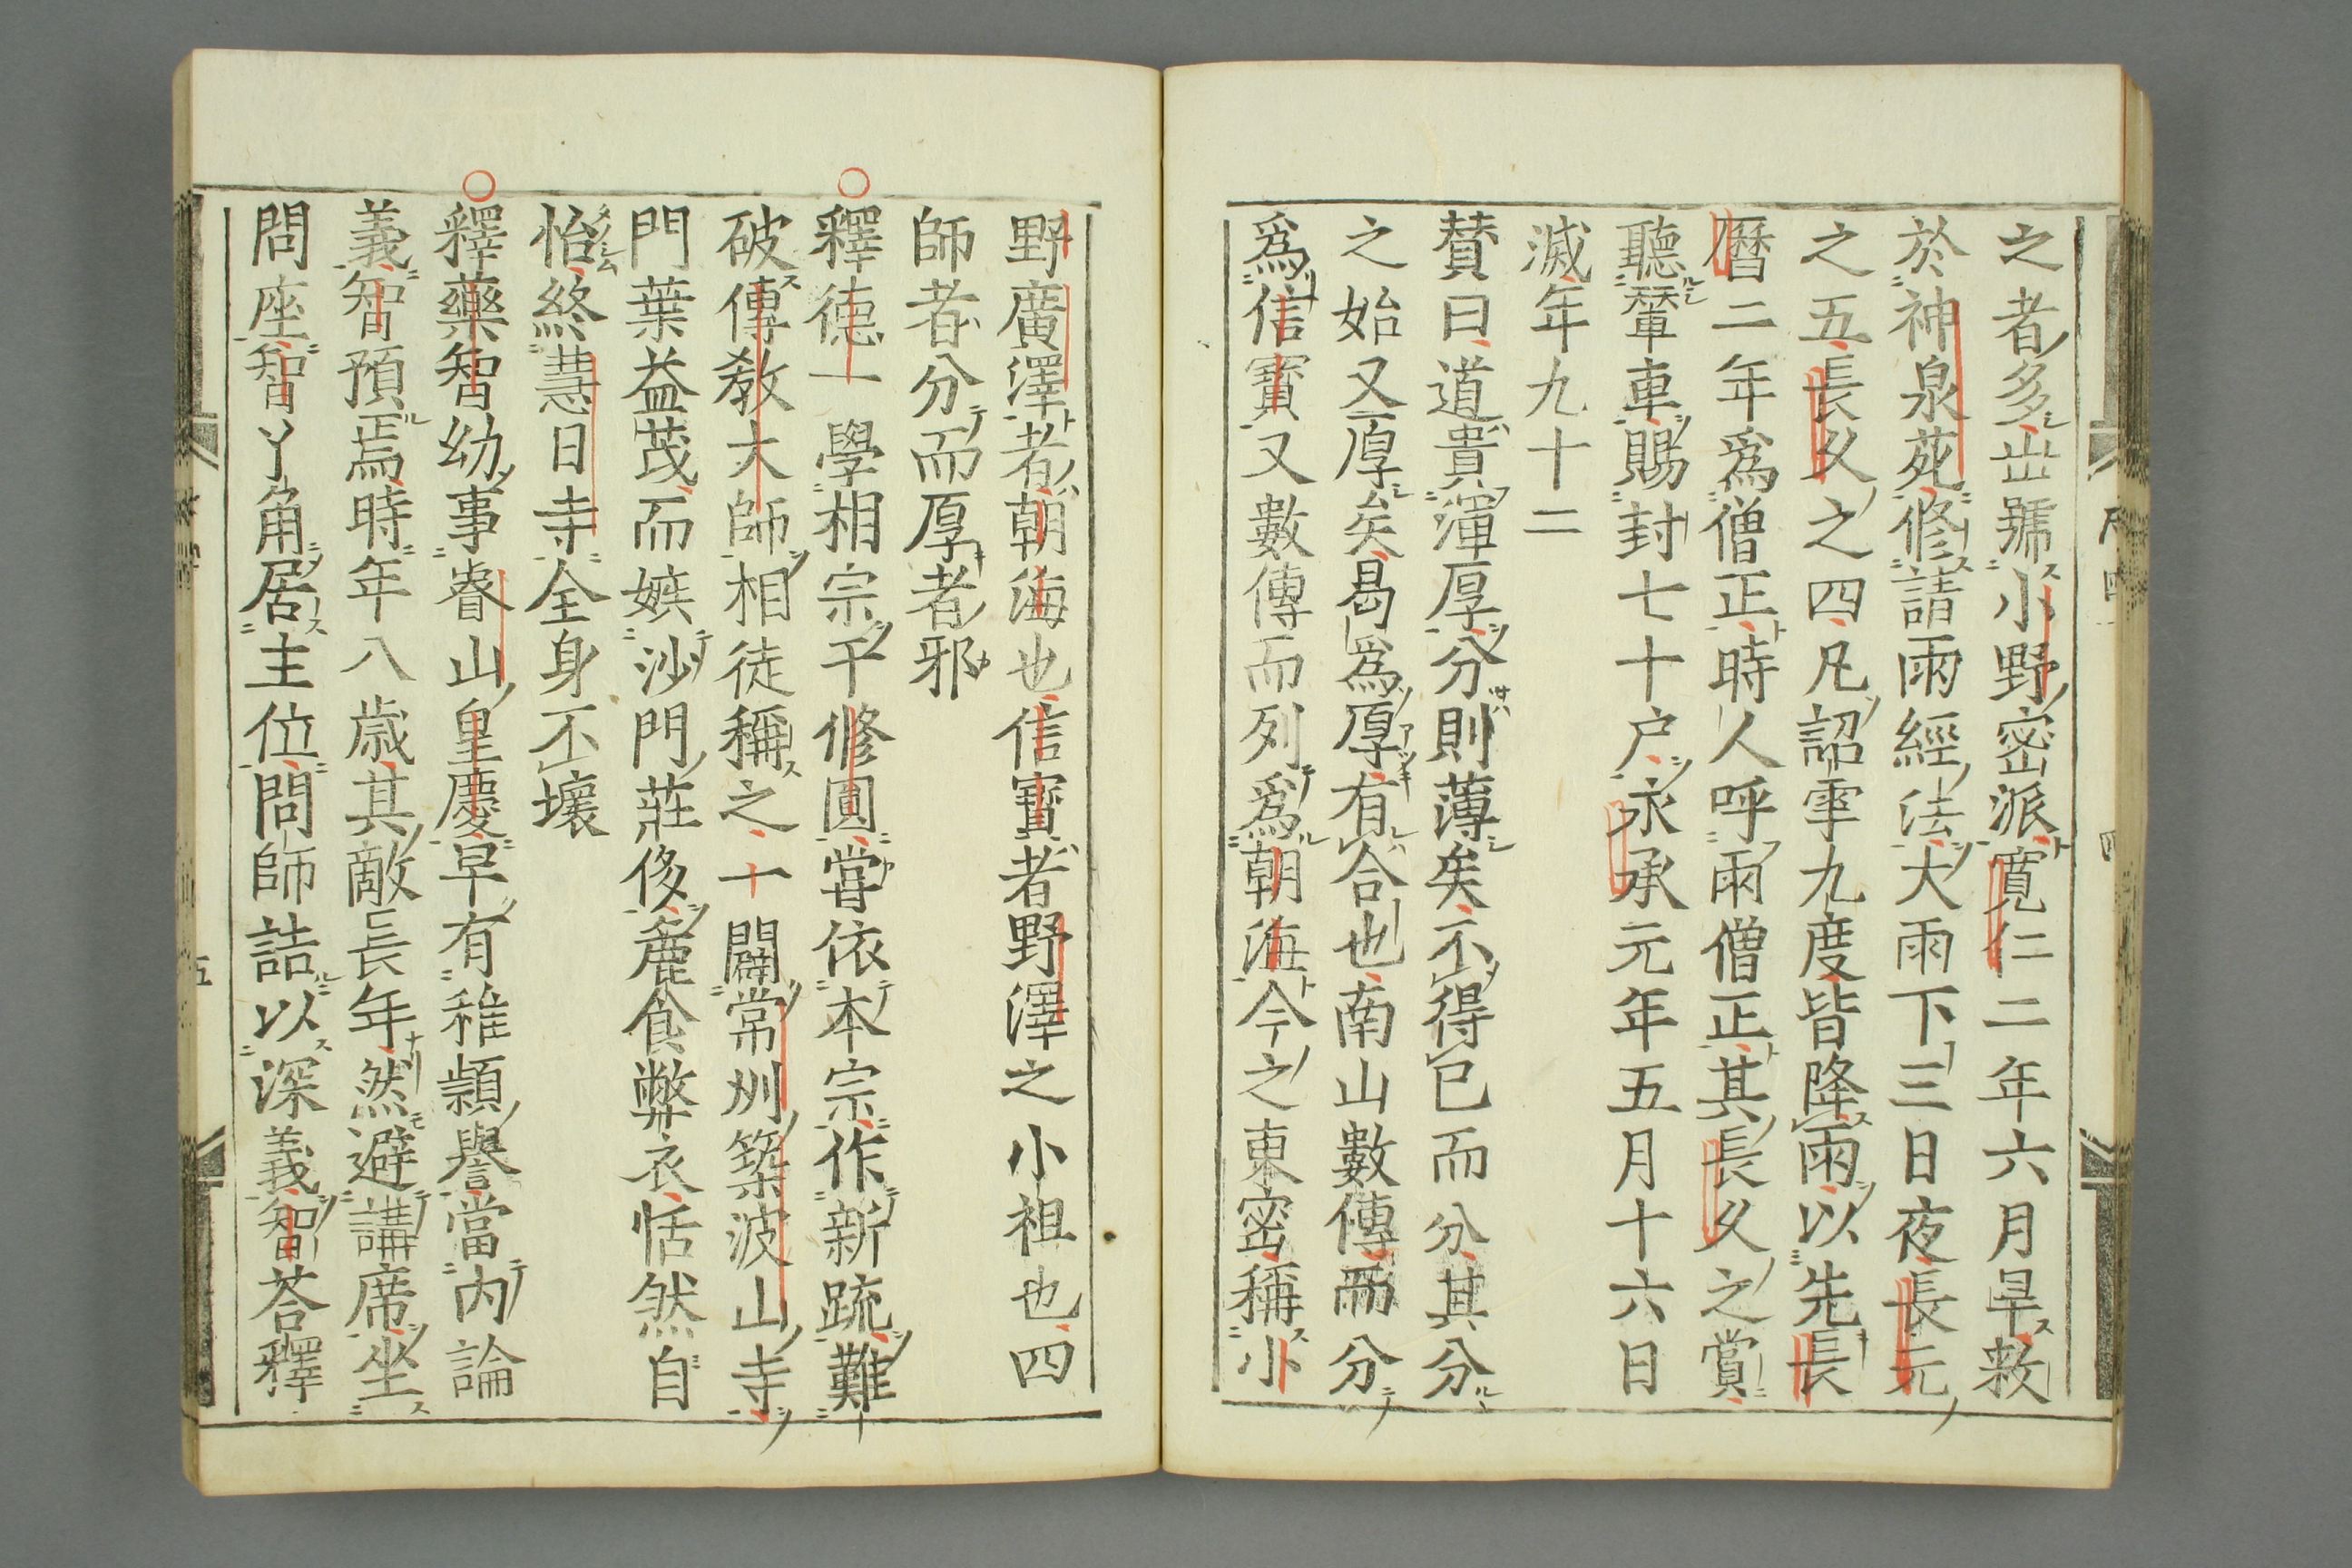 之者多此號小野密派寬仁二年六月旱敕
於神泉苑修請雨經法大雨下三日夜長元
之五長久之四凡詔雩九度皆降雨以先長
曆二年爲僧正時人呼雨僧正其長久之賞
聽輦車賜封七十户永承元年五月十六日
滅年九十二
賛曰道貴渾厚分則薄矣不得已而分其分
之始又厚矣曷爲厚有合也南山數傳而分
爲信寶又數傳而列爲朝海今之東密稱小
野廣澤者朝海也信寶者野澤之小祖也四
師者分而厚者邪
釋德一學相宗于修圓嘗依本宗作新疏難
破傳教大師相徒稱之一闢常州築波山寺
門葉益茂而嫉沙門莊侈麁食弊衣恬然自
怡終慧日寺全身不壞
釋藥智幼事睿山皇慶早有稚穎譽當内論
義智預焉時年八歲其敵長年然避講席坐
問座智丫角居主位問師詰以深義智荅釋
五